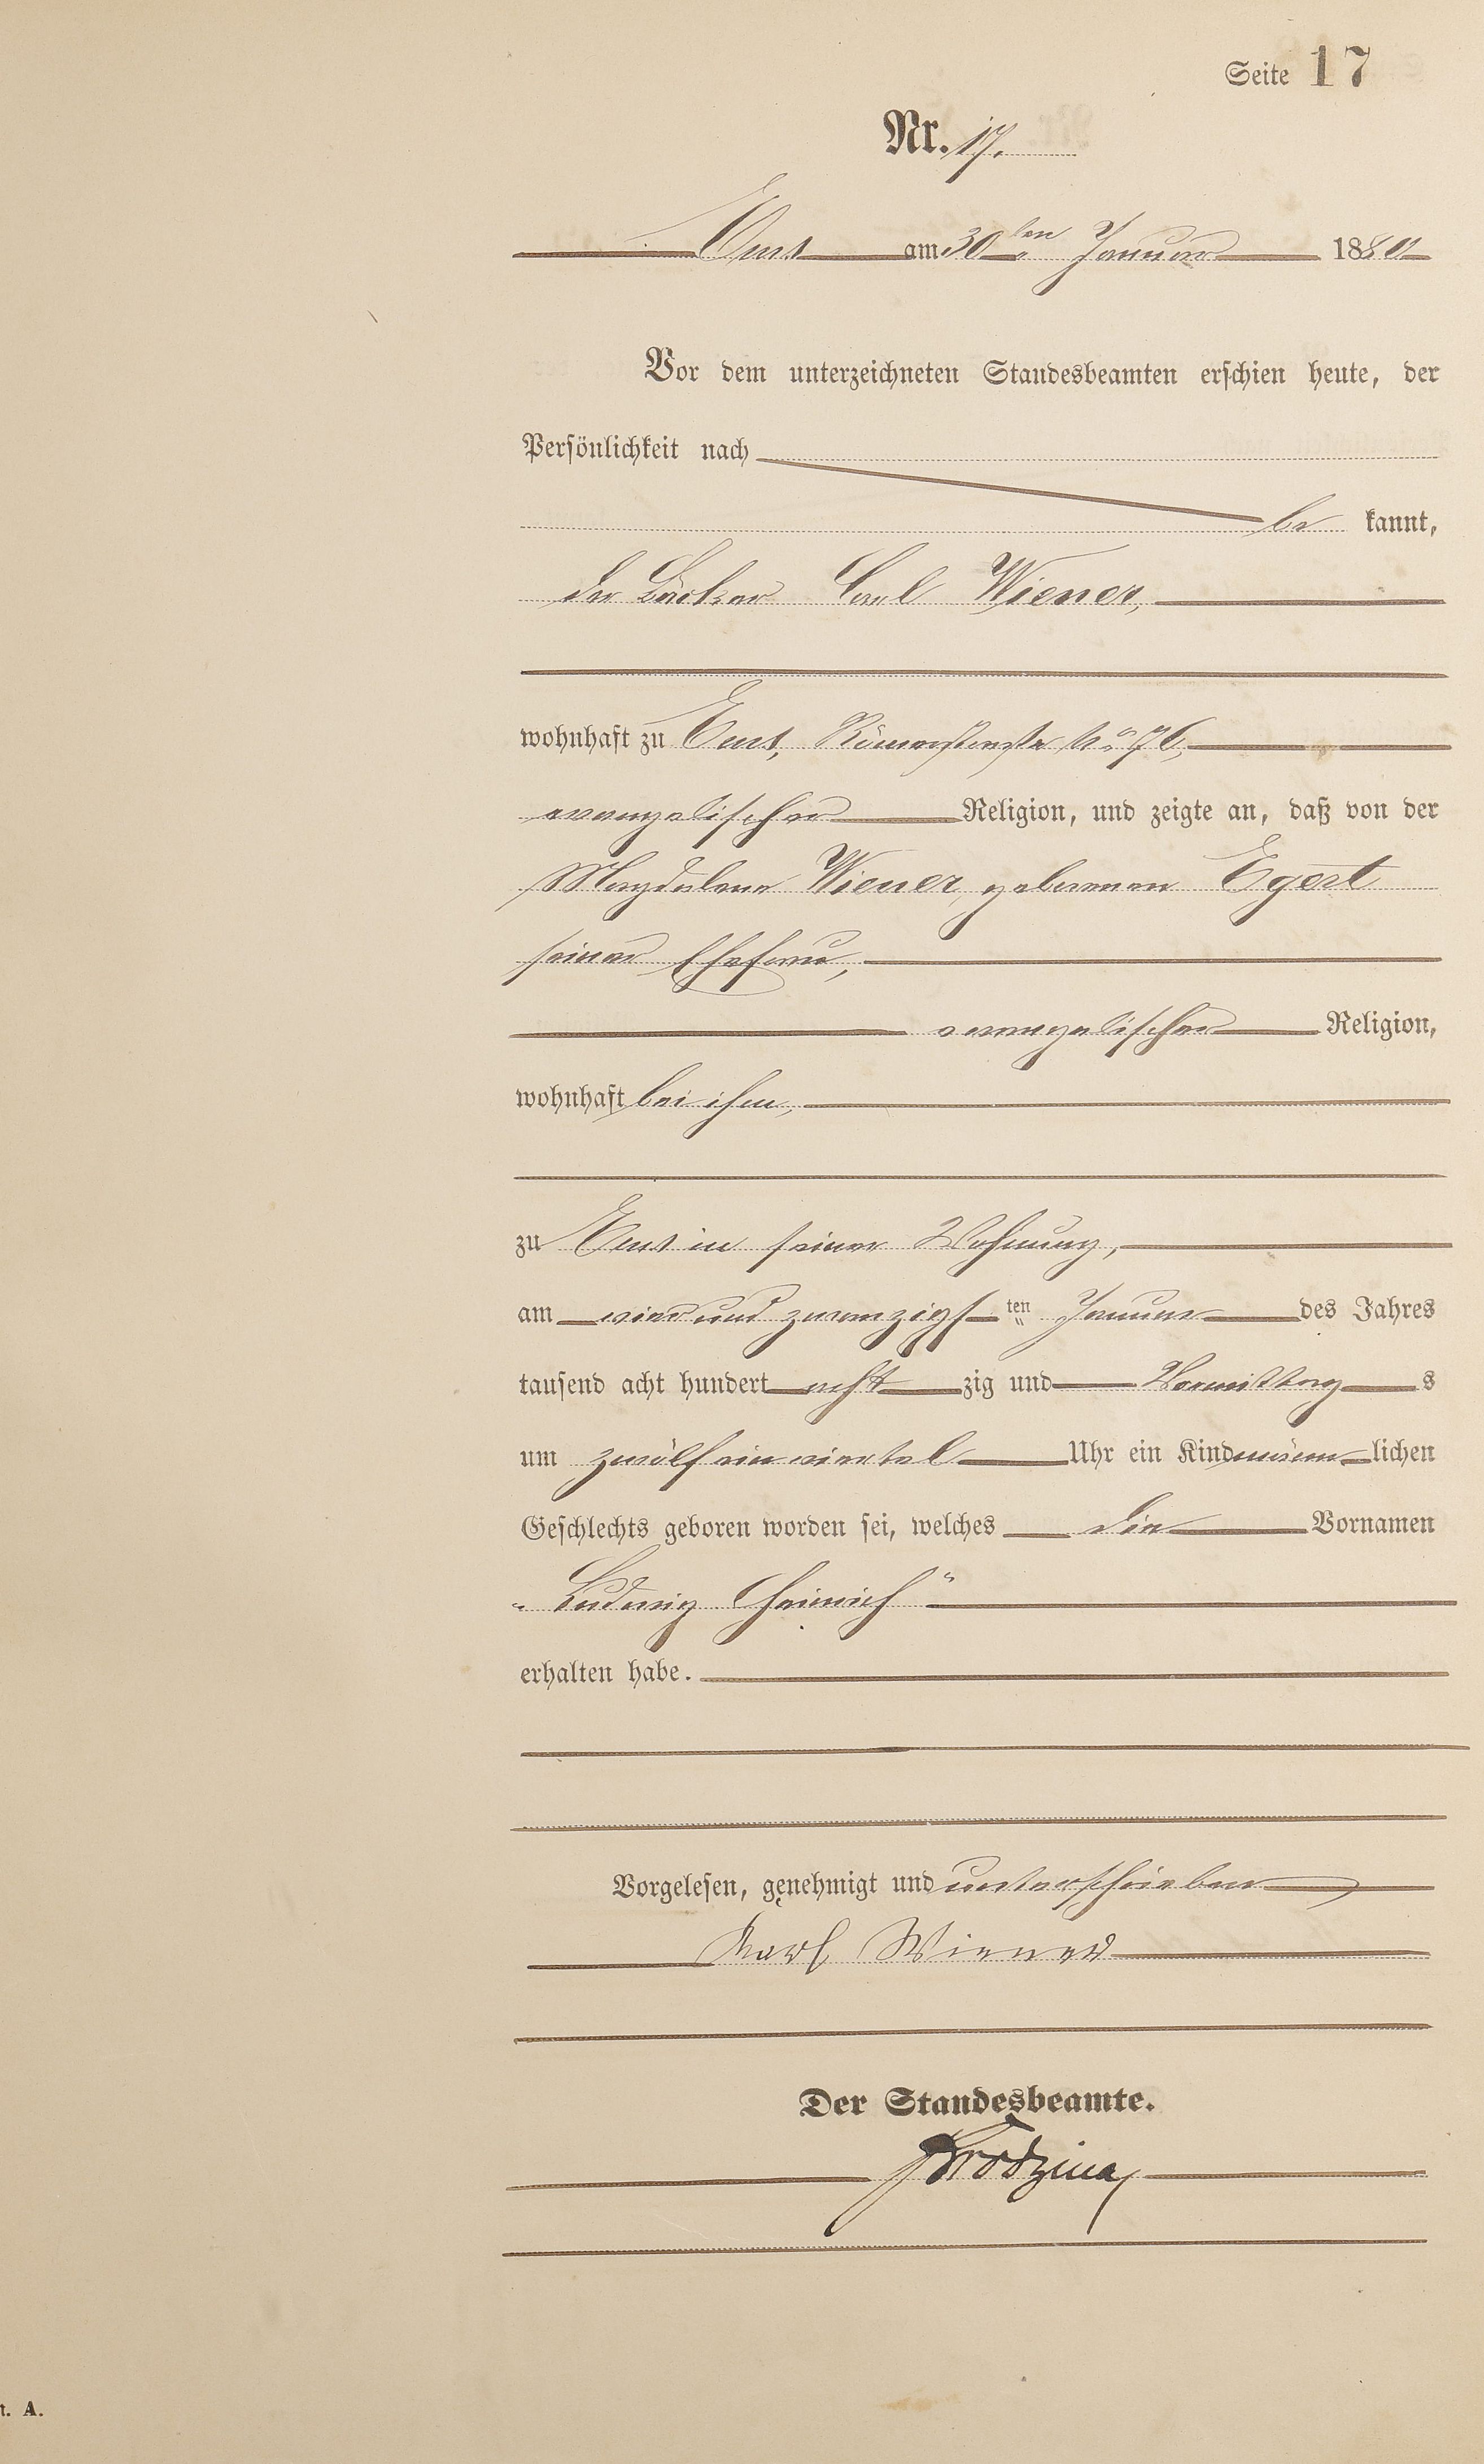 Seite 17
Nr. 17.
Ems am 30ten Januar 1880
Vor dem unterzeichneten Standesbeamten erschien heute, der
Persönlichkeit nach
be kannt,
der Bäcker Carl Wiener,
wohnhaft zu Ems, Römerstraße No 76,
evangelischer Religion, und zeigte an, daß von der
Magdalena Wiener, geborenen Egert
seiner Ehefrau,
evangelischer Religion,
wohnhaft bei ihm,
zu Ems in seiner Wohnung,
am vierundzwanzigsten Januar des Jahres
tausend acht hundert acht zig und Vormittag s
um zwölf ein viertel Uhr ein Kind männ lichen
Geschlechts geboren worden sei, welches die Vornamen
"Ludwig Heinrich"
erhalten habe.
Vorgelesen, genehmigt und unterschrieben
Karl Wiener
Der Standesbeamte.
t. A.